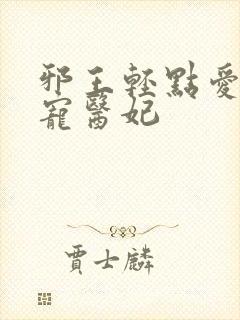 邪王輕點愛
寵醫妃
賈士麟